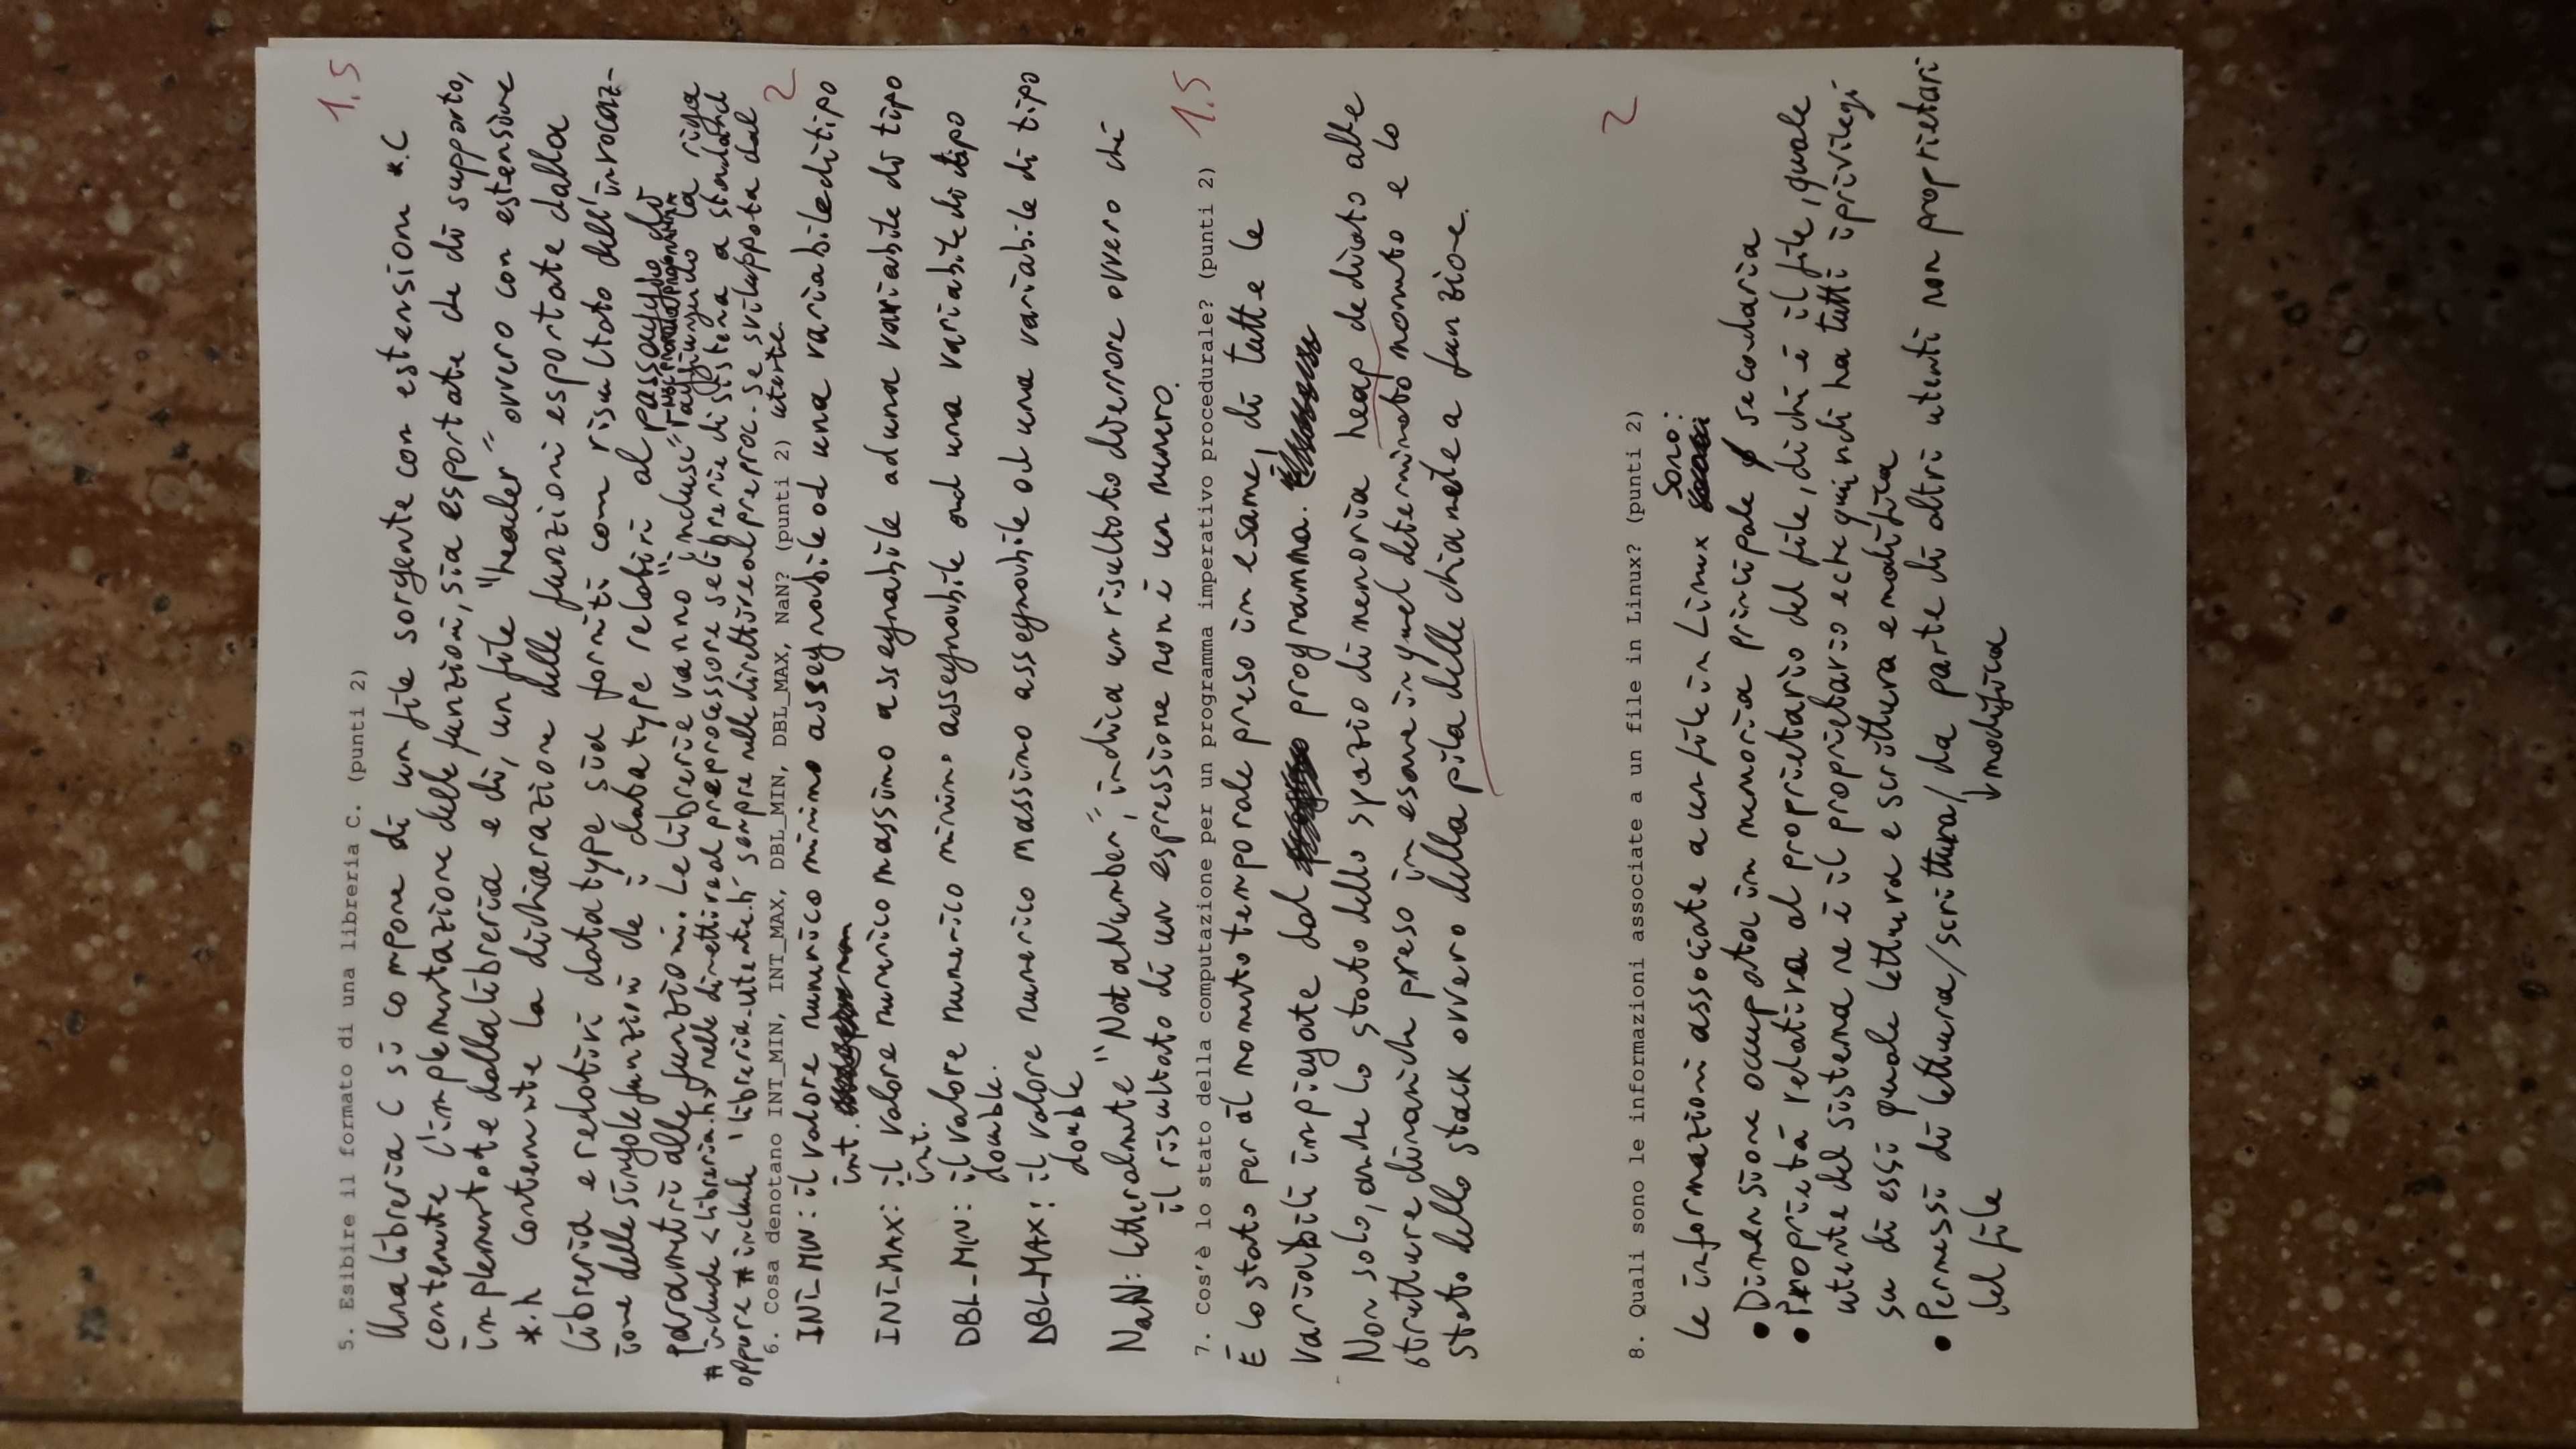 1.5
5. Esibire il formato di una libreria C. (punti 2)
Una libreria C si compone di un file sorgente con estensione *.C
contenente l'implementazione delle funzioni, sia esportate che di supporto,
implementate dalla libreria e di, un file "header" ovvero con estensione
*.h contenente la dichiarazione delle funzioni esportate dalla
libreria e relativi datatype sia forniti come risultato dell'invocaz-
ione delle singole funzioni che i datatype relativi al passaggio di
parametri alle funzioni. Le librerie vanno "incluse" aggiungendo la riga
NEL PROPRIO PROGRAMMA
#include <libreria.h> nelle direttive al preprocessore se librerie di sistema o standard
oppure #include "libreria-utente.h" sempre nelle direttive al preproc. se sviluppata dal
utente.
6. Cosa denotano INT_MIN, INT_MAX, DBL_MIN, DBL_MAX, NaN? (punti 2)
2
INT_MIN: il valore numerico minimo assegnabile ad una variabile di tipo
int.
INT_MAX: il valore numerico massimo assegnabile ad una variabile di tipo
int.
DBL_MIN: il valore numerico minimo assegnabile ad una variabile di tipo
double.
DBL_MAX: il valore numerico massimo assegnabile ad una variabile di tipo
double
NaN: letteralmente "Not a Number", indica un risultato di errore ovvero che
il risultato di un espressione non è un numero.
7. Cos'è lo stato della computazione per un programma imperativo procedurale? (punti 2)
1.5
È lo stato per il momento temporale preso in esame, di tutte le
variabili impiegate dal programma.
Non solo, anche lo stato dello spazio di memoria heap dedicato alle
strutture dinamiche preso in esame in quel determinato momento e lo
stato dello stack ovvero della pila delle chiamate a funzione.
2
8. Quali sono le informazioni associate a un file in Linux? (punti 2)
Le informazioni associate a un file in Linux sono:
• Dimensione occupata in memoria principale secondaria
• Proprietà relativa al proprietario del file, di chi è il file, quale
utente del sistema ne è il proprietario e che quindi ha tutti i privilegi
su di essi quale lettura e scrittura e modifica
• Permessi di lettura/scrittura/ da parte di altri utenti non proprietari
del file
↓modifica